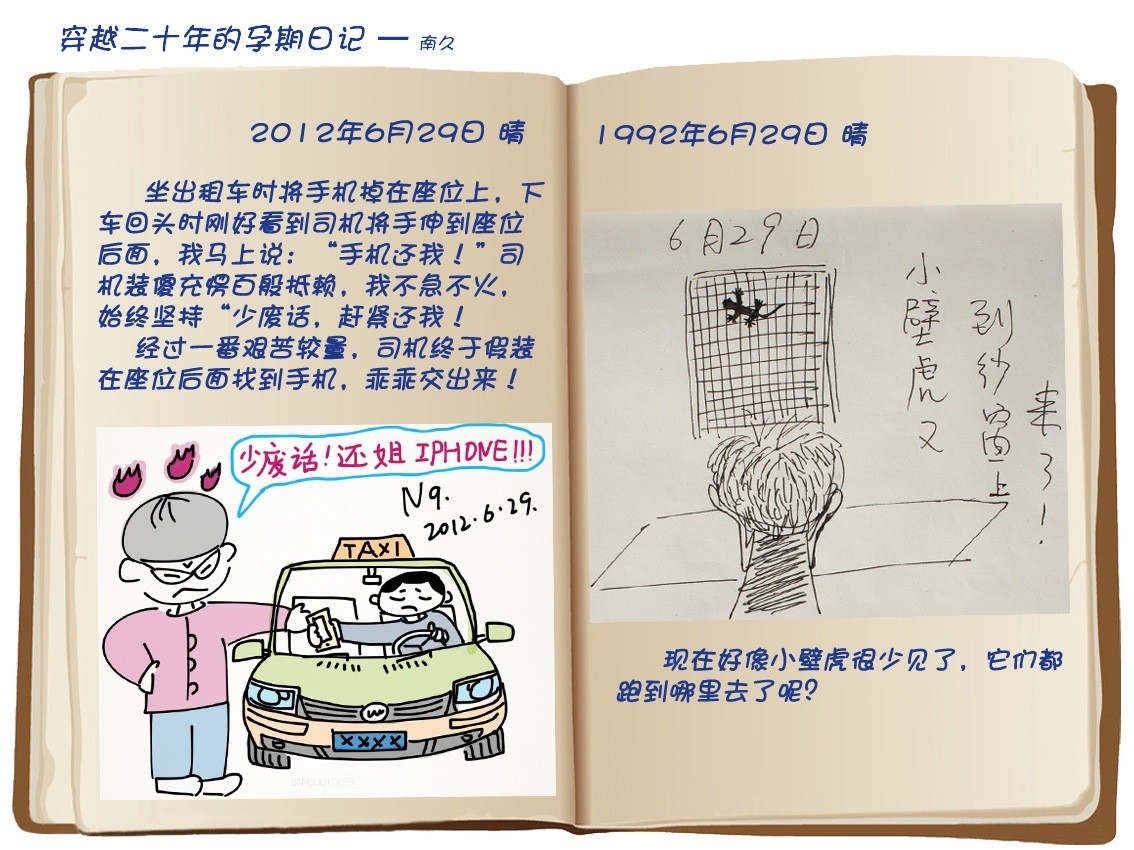 穿越二十年的孕期日记 — 南久
2012年6月29日 晴
坐出租车时将手机掉在座位上，下
车回头时刚好看到司机将手伸到座位
后面，我马上说：“手机还我！”司
机装傻充愣百般抵赖，我不急不火，
始终坚持“少废话，赶紧还我！
经过一番艰苦较量，司机终于假装
在座位后面找到手机，乖乖交出来！
少废话！还姐IPHONE!!!
N9.
2012.6.29.
TAXI
XXXX
1992年6月29日 晴
6月29日
小壁虎又
到纱窗上
来了！
现在好像小壁虎很少见了，它们都
跑到哪里去了呢？